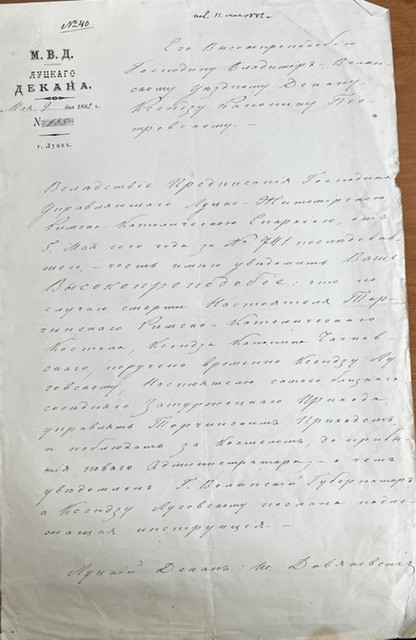 № 40
пол. 11 мая 1882 г.
М. В. Д.
ЛУЦКАГО
ДЕКАНА.
Мая 9 дня 1882 г.
№
г. Луцкъ.
Его Высокопреподобію
Господину Владиміръ-Волын-
скому уѣздному Декану
Ксендзу Канонику Піо-
тровскому. —
Вслѣдствіе Предписанія Господина
Управляющаго Луцко-Житомірскою
Римско-Католическою Епархіею, отъ
5. Мая сего года за № 741 послѣдовав
шаго, — честь имѣю увѣдомить Ваше
Высокопреподобіе: что по
случаю смерти Настоятеля Тор-
чинскаго Римско-Католическаго
Костела, Ксендза
скаго, поручено временно Ксендзу Лу
говскому, Настоятелю самаго близкаго
сосѣдняго Затурецкаго Прихода,
управлять Торчинскимъ Приходомъ
и наблюдать за Костеломъ, до прибы
тія новаго Администратора, — о чемъ
увѣдомленъ Г. Волынскій Губернаторъ
а Ксендзу Луговскому послана надле
жащая инструкція. —
Луцкій Деканъ: Довяковскій